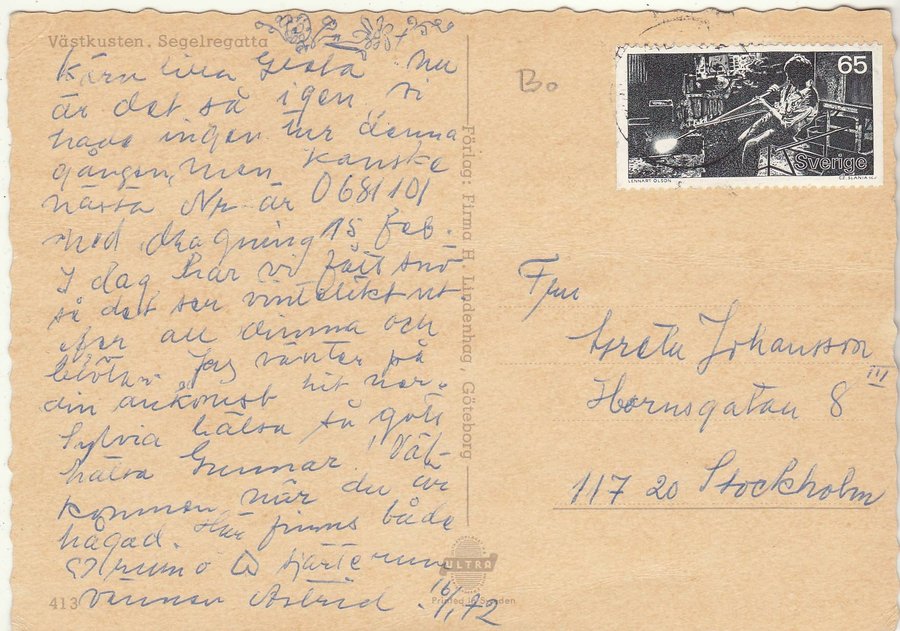 Västkusten. Segelregatta
Kära lilla Greta nu
är det så igen, vi
hade ingen tur denna
gången, men kanske
nästa Nr är 0681101
med dragning 15 feb.
I dag har vi fått snö
så det ser vinterlikt ut.
efter all dimma och
blöta. Jag väntar på
din ankomst hit ner.
Sylvia hälsa så gott
hälsa Gunnar! Väl-
kommen när du är
hågad. Här finns både
husrum o hjärterum
vännen Astrid. 16/1 72
413
Förlag: Firma H. Lindenhag, Göteborg
ULTRA
Printed in Sweden
Bo
65
Sverige
LENNART OLSON
CZ. SLANIA SC
Fru
Greta Johansson
Hornsgatan 8 III
117 20 Stockholm